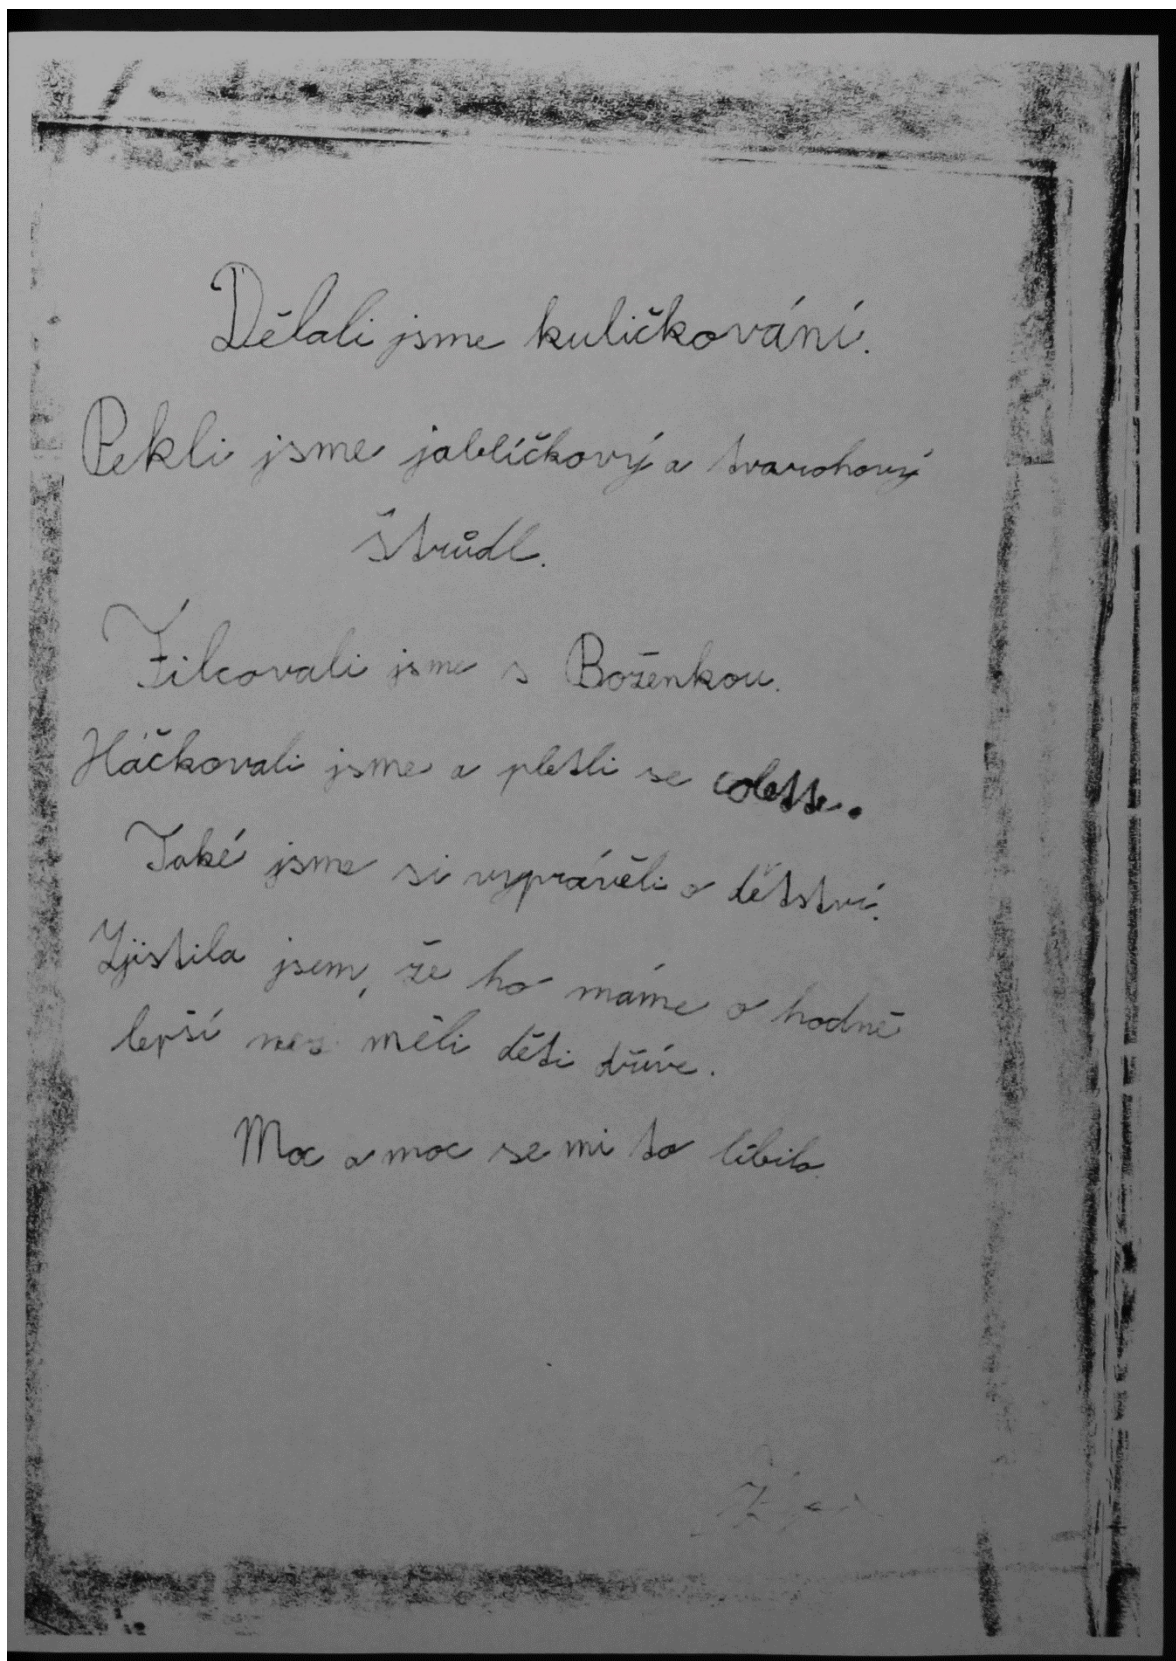 Dělali jsme kuličkování.
Pekli jsme jablíčkový a tvarohový
štrůdl.
Filcovali jsme s Boženkou.
Háčkovali jsme a pletli se colette.
Také jsme si vyprávěli o dětství.
Zjistila jsem, že ho máme o hodně
lepší než měli děti dříve.
Moc a moc se mi to líbilo.